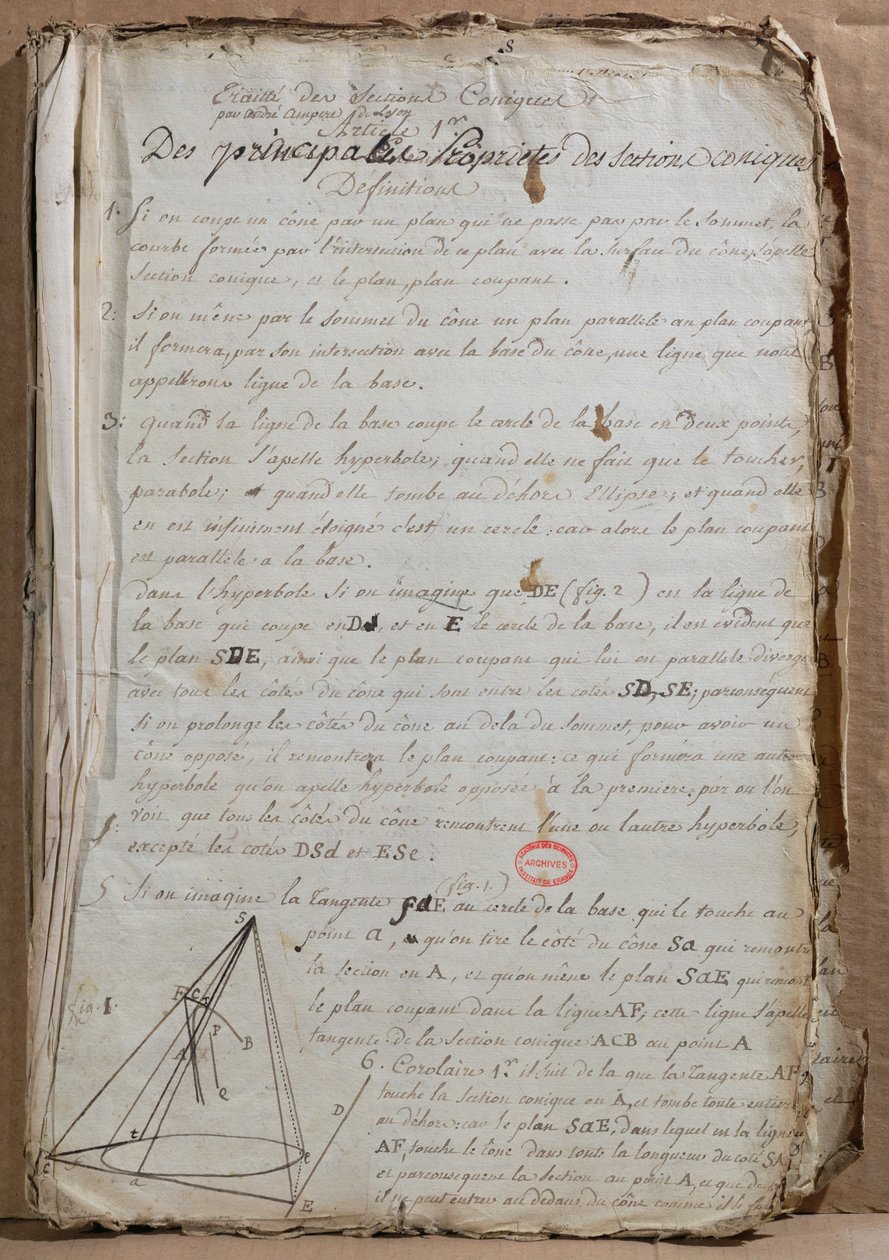 S
Traitté des Sections Coniques
par andré Ampere de Lyon
Article 1.er
Des principales Proprietés des sections coniques
Définitions
1. Si on coupe un cône par un plan qui ne passe pas par le sommet, la
courbe formée par l'intersection de ce plan avec la surface du cône, s'apelle
section conique, et le plan, plan coupant.
2: Si on mène par le sommet du cône un plan parallele au plan coupant
il formera, par son intersection avec la base du cône, une ligne que nous
appellerons ligne de la base.
3: quand la ligne de la base coupe le cercle de la base en deux points,
la section s'apelle hyperbole; quand elle ne fait que le toucher,
parabole; quand elle tombe au déhors Ellipse; et quand elle
en est infiniment éloigné c'est un cercle; car alors le plan coupant
est parallele a la base.
dans l'hyperbole si on imagine que DE (fig. 2) est la ligne de
la base qui coupe en D, et en E le cercle de la base, il est évident que
le plan SDE, ainsi que le plan coupant qui lui est parallele diverge
avec tous les côtés du cône qui sont entre les cotés SD, SE; parconsequent
si on prolonge les côtés du cône au dela du sommet, pour avoir un
cône opposé, il remontrera le plan coupant: ce qui formera une autre
hyperbole qu'on apelle hyperbole opposée à la premiere. par ou l'on
voit que tous les côtés du cône remontrent l'une ou l'autre hyperbole,
excepté les cotés DSd et ESe.
ACADÉMIE DES SCIENCES
ARCHIVES
INSTITUT DE FRANCE
5 Si on imagine la Tangente (fig. 1.) FaE, au cercle de la base qui le touche au
point a, qu'on tire le côté du cône Sa qui remontre
la section en A, et qu'on mène le plan SaE qui remont
le plan coupant dans la ligne AF; cette ligne s'apelle
tangente de la section conique ACB au point A
6. Corolaire 1.er il suit de la que la Tangente AF
touche la section conique en A, et tombe toute entiere
au déhors: car le plan SaE, dans lequel est la ligne
AF, touche le cône dans toute la longueur du coté SA,
et parconsequent la section au point A, et que de
il ne peut entrer au dedans du cône comme il le
fig. 1.
S
F
C
P
A
B
Q
D
t
c
a
e
E